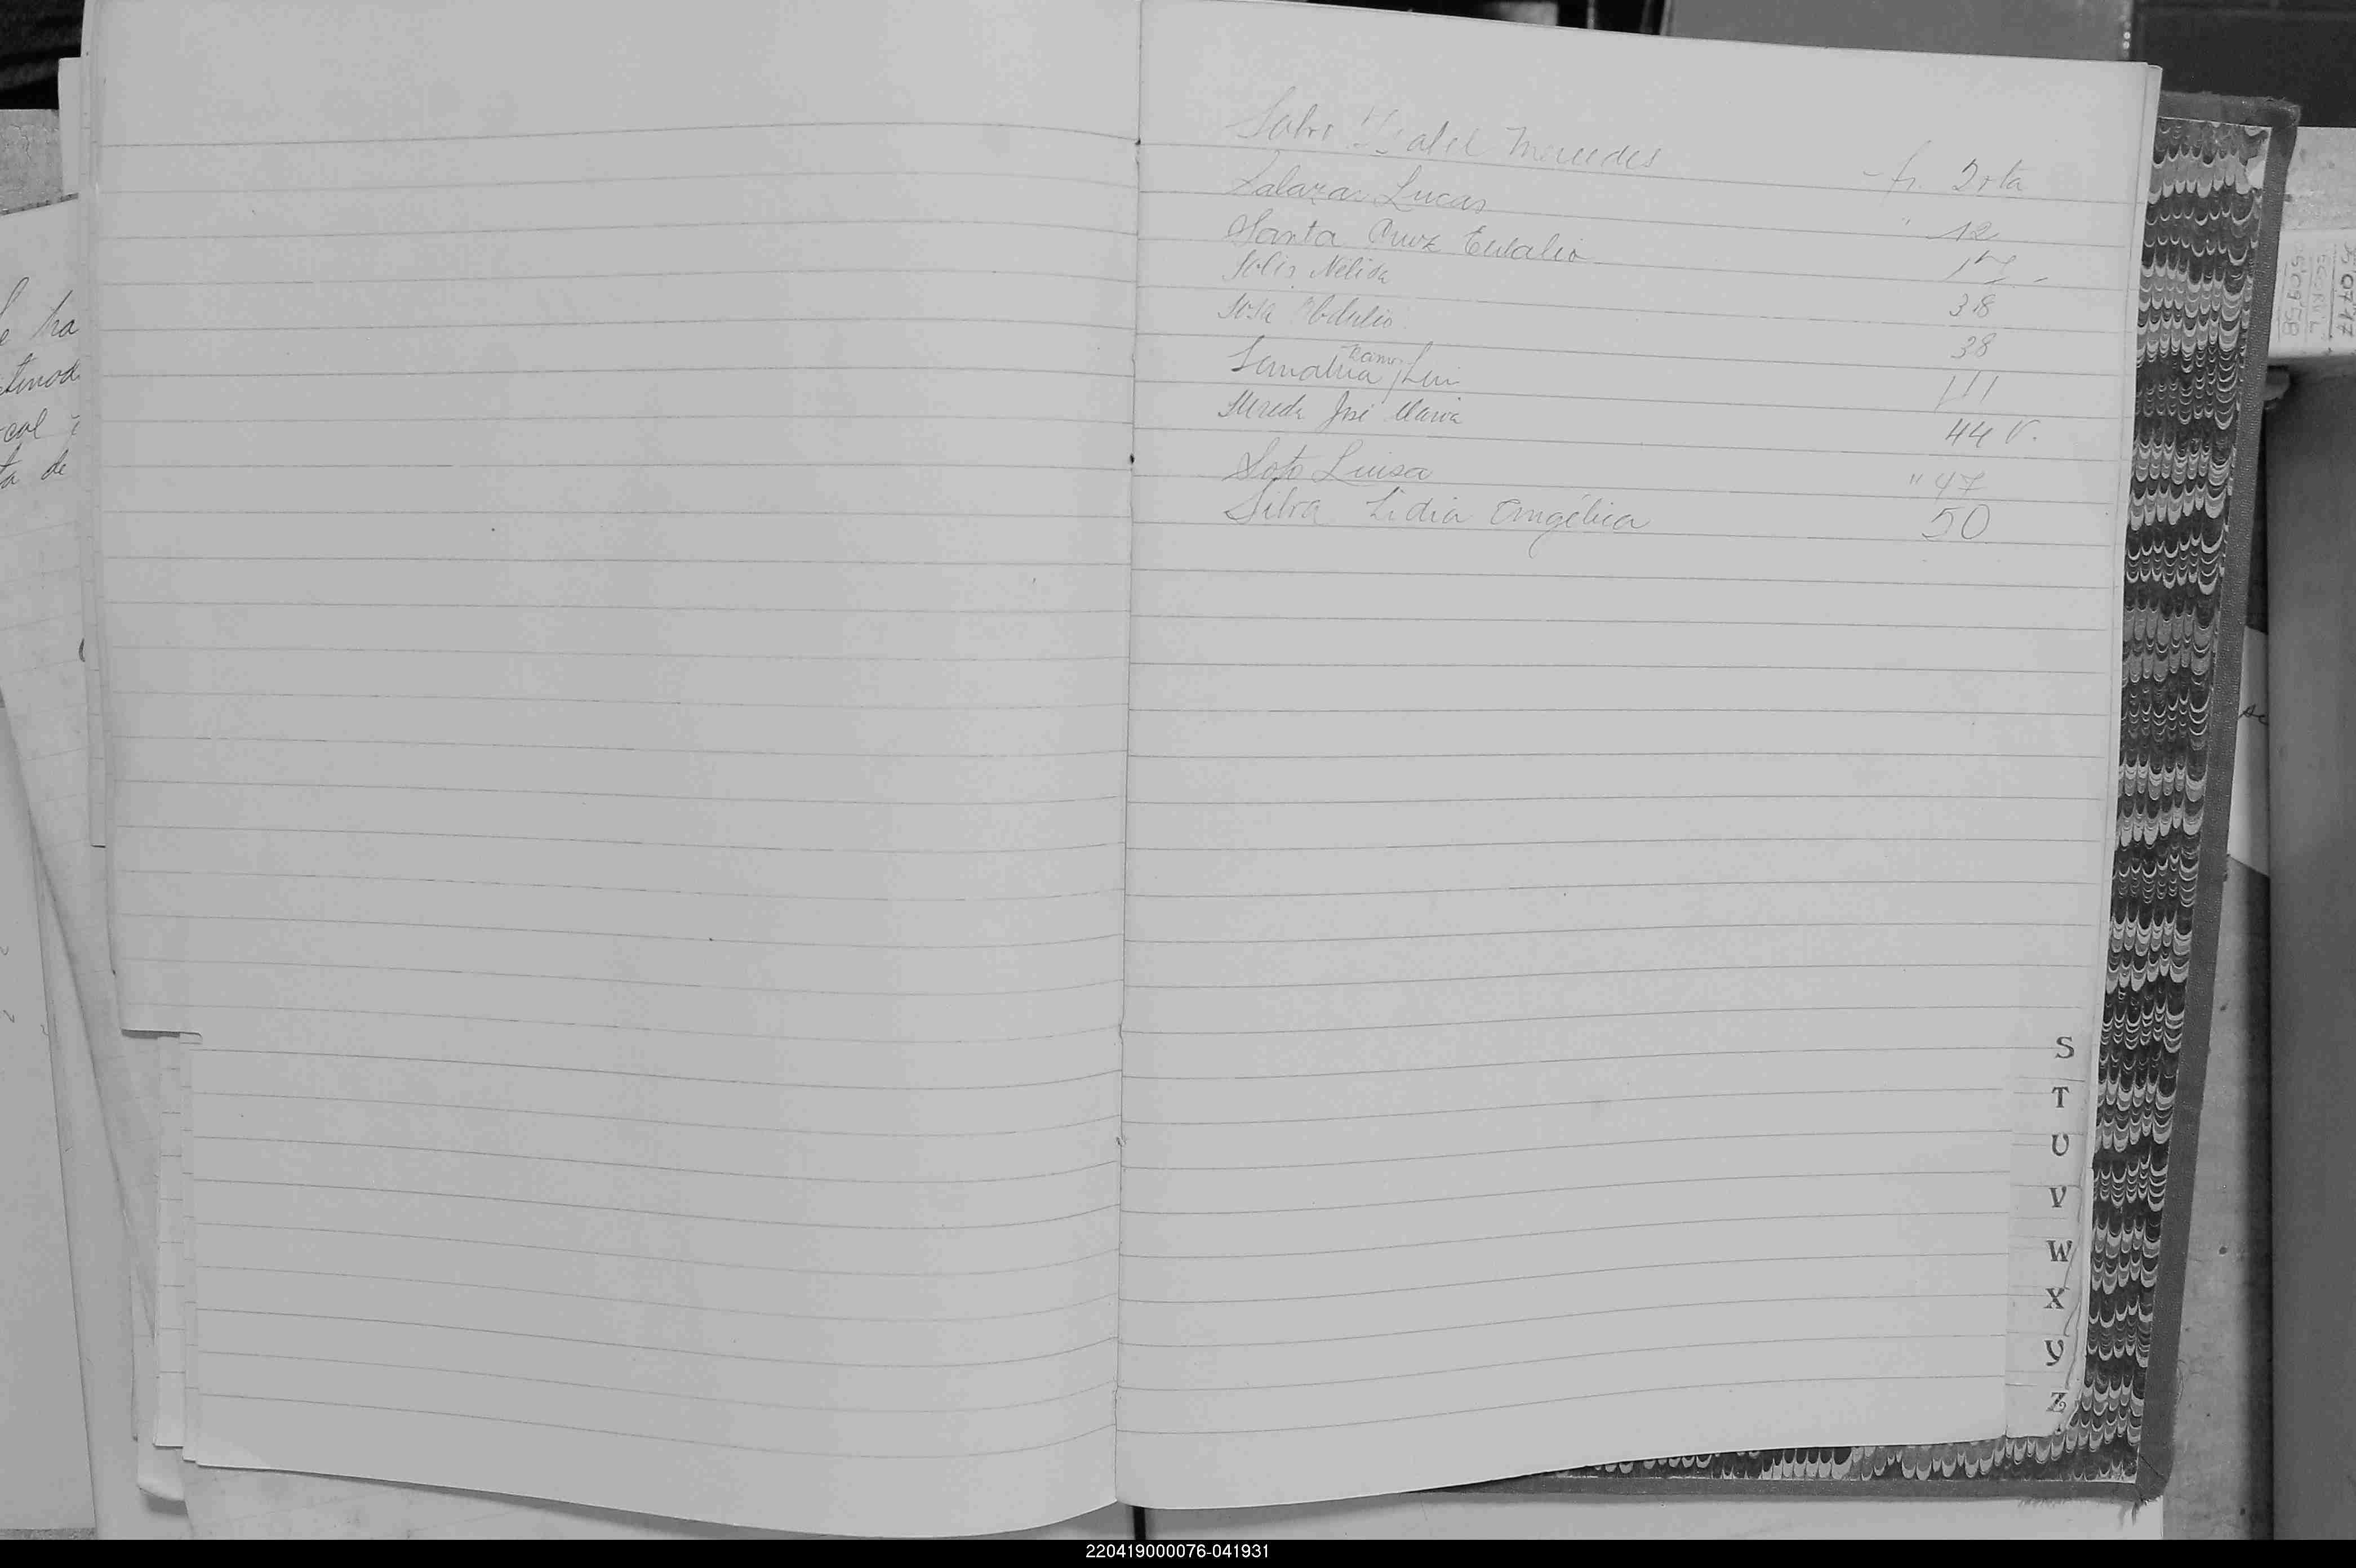 e ha
col
ta de
Isabel Mercedes - fs. 2 vta
Salazar Lucas " 12
Santa Cruz Eulalio 17 -
Solis Nélida 38
Sosa Obdulio 38
Ramon
Luis 111
José Maria 44 V.
Soto Luisa " 47
Silva Lidia Angélica 50
S
T
U
V
W
X
Y
Z
220419000076-041931